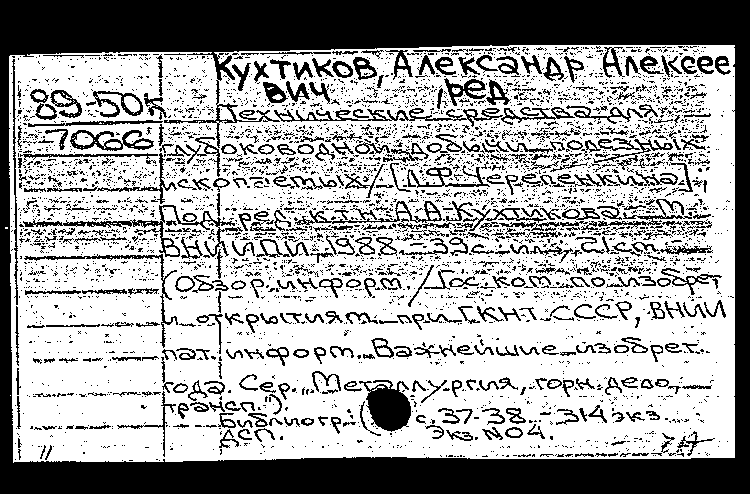 Кухтиков, Александр Алексее-
вич, ред
89-50к
7066
Технические средства для
глубоководной добычи полезных
ископаемых / [Л.Ф. Черепенкина];
Под ред. к.т.н. А.А. Кухтикова. М.:
ВНИИПИ, 1988. - 39 с.: ил.; 21 см.
(Обзор. информ. / Гос. ком. по изобрет.
и открытиям при ГКНТ СССР, ВНИИ
пат. информ. Важнейшие изобрет.
года. Сер. "Металлургия, горн. дело,
трансп.").
Библиогр.: с. 37-38. - 314 экз.
ДСП. Экз. N04.